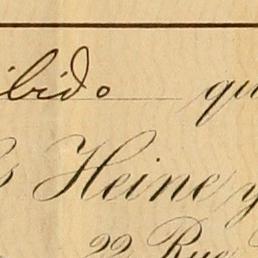 ibido qu
s Heine y
22 Rue